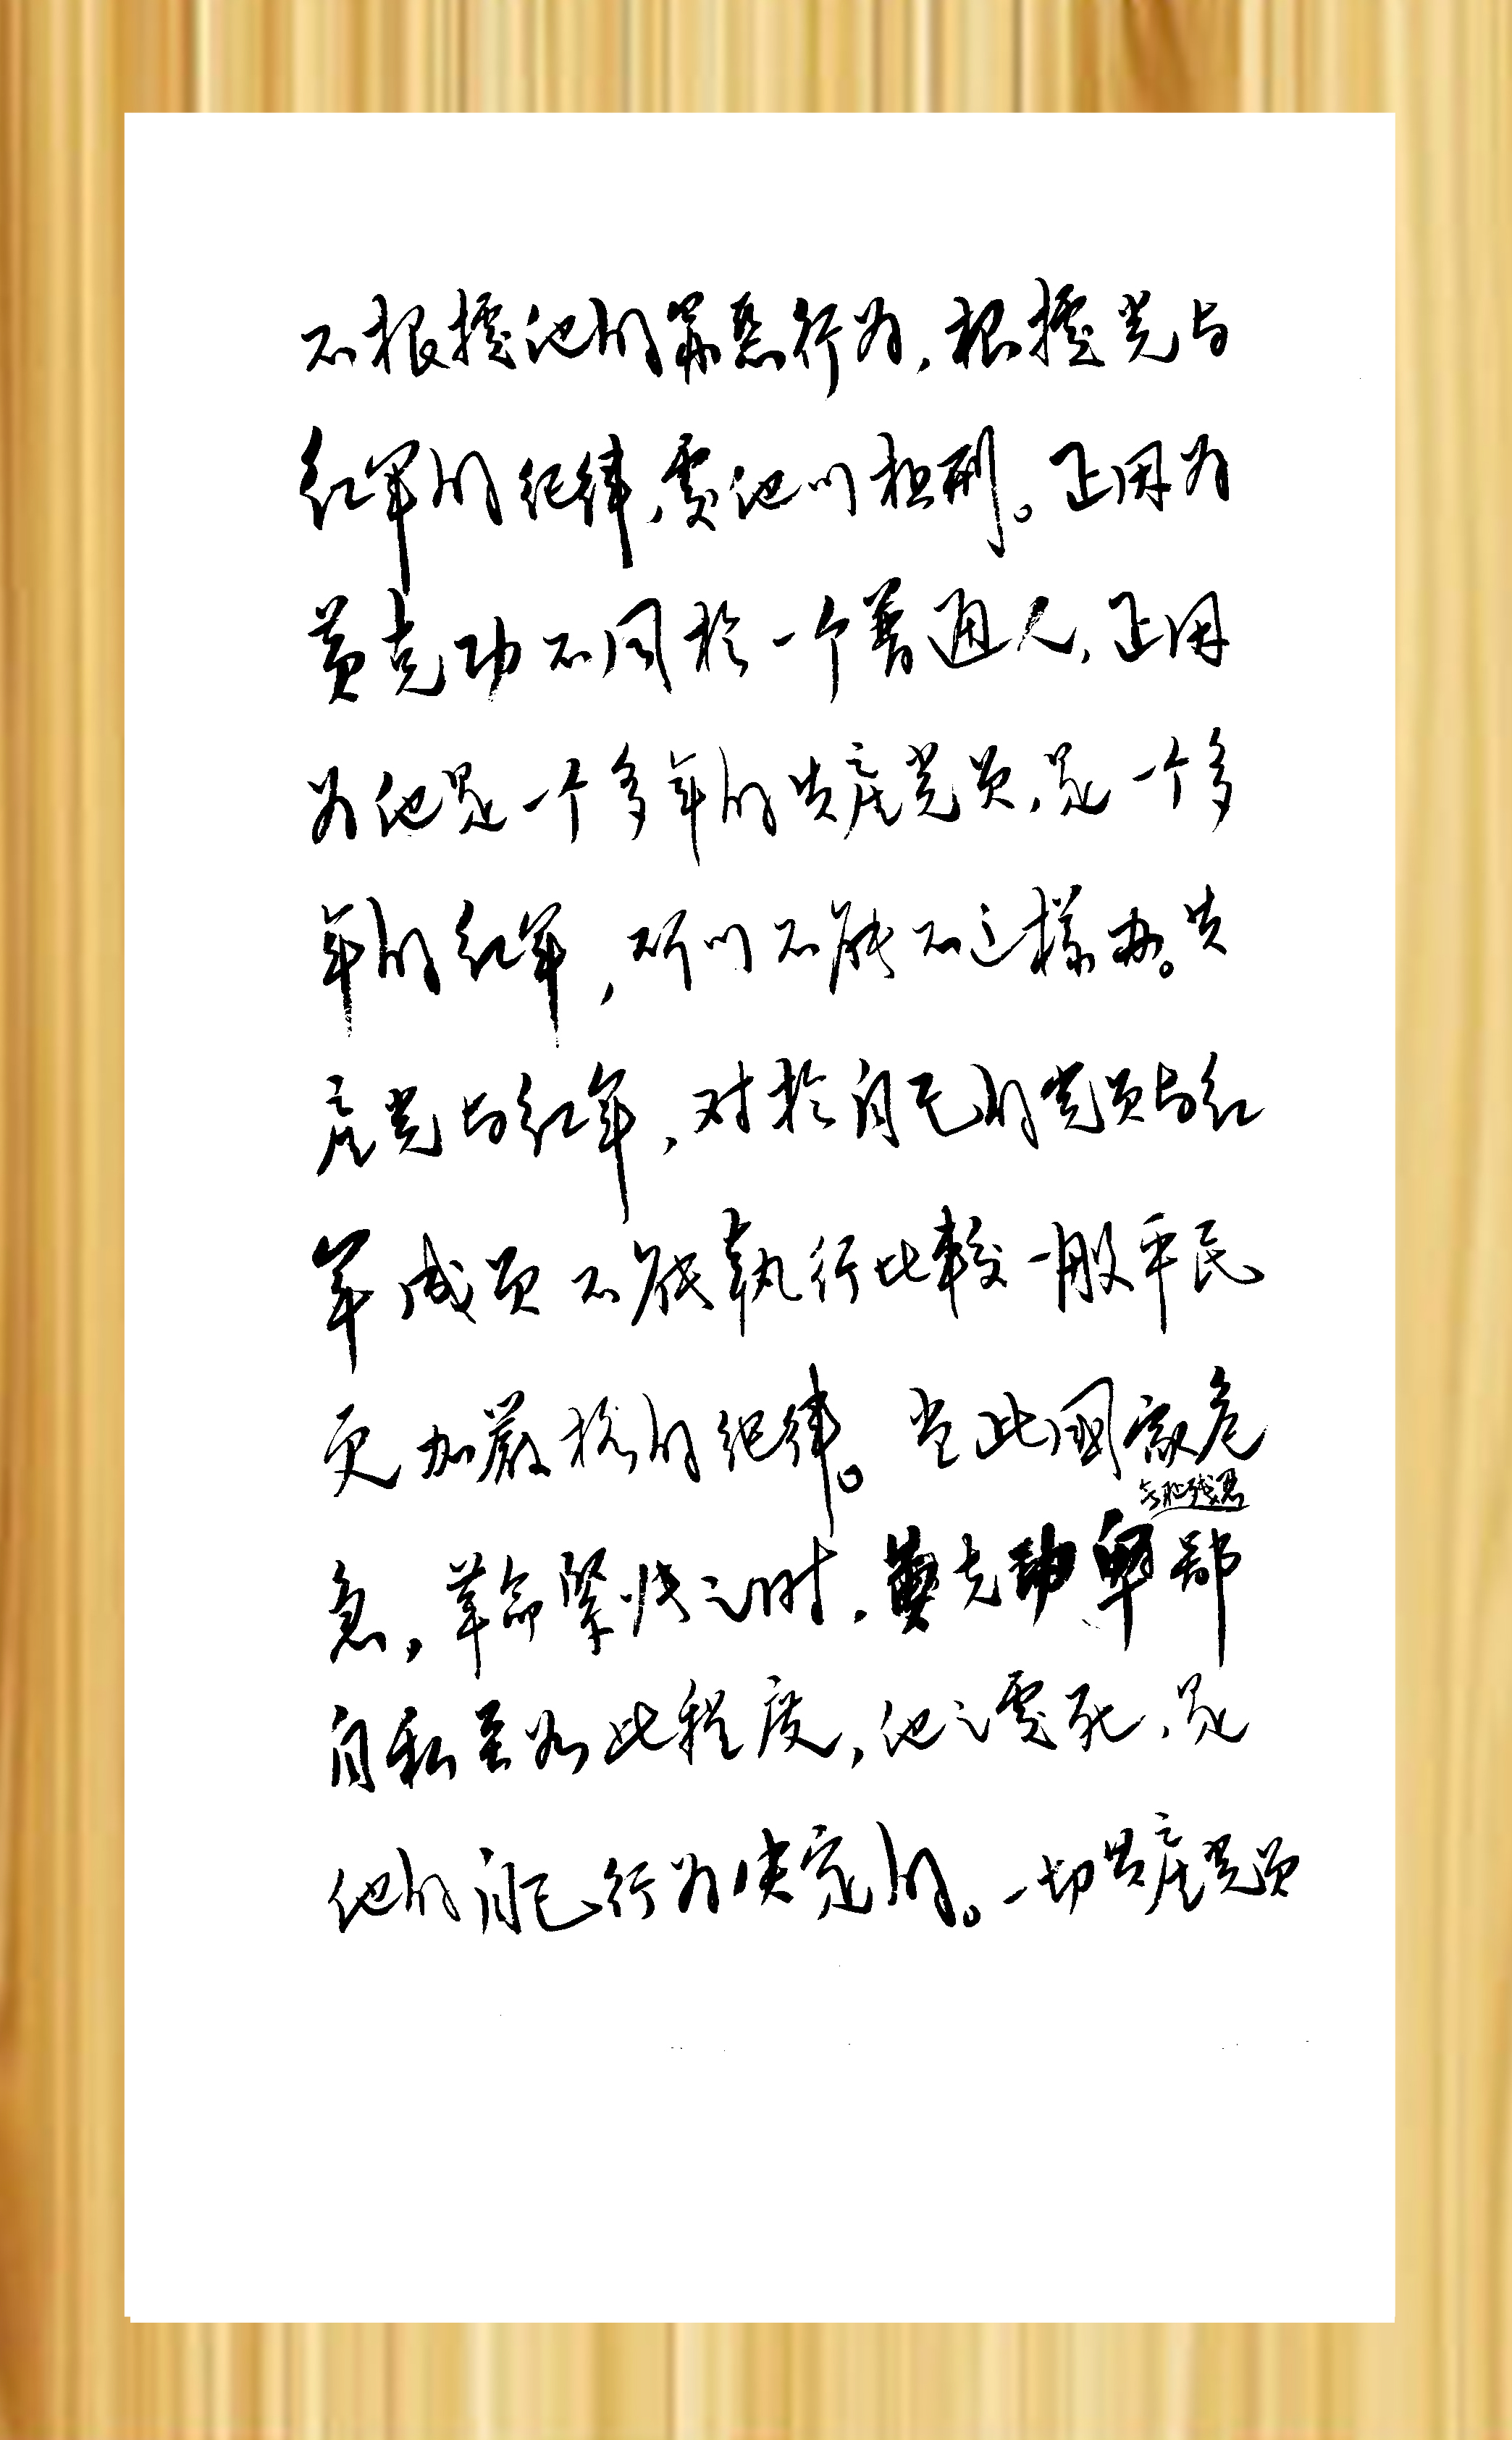 不根據他的罪惡行为，根據党与
红軍的纪律，處他以极刑。正因为
黄克功不同於一个普通人，正因
为他是一个多年的共產党员，是一个多
年的红軍，所以不能不这樣办。共
產党与红軍，对於自己的党员与红
軍成员不能執行比較一般平民
更加嚴格的纪律。当此國家危
急，革命緊张之时，黄克功卑鄙
無恥残忍
自私至如此程度，他之處死，是
他的自己行为决定的。一切共產党员